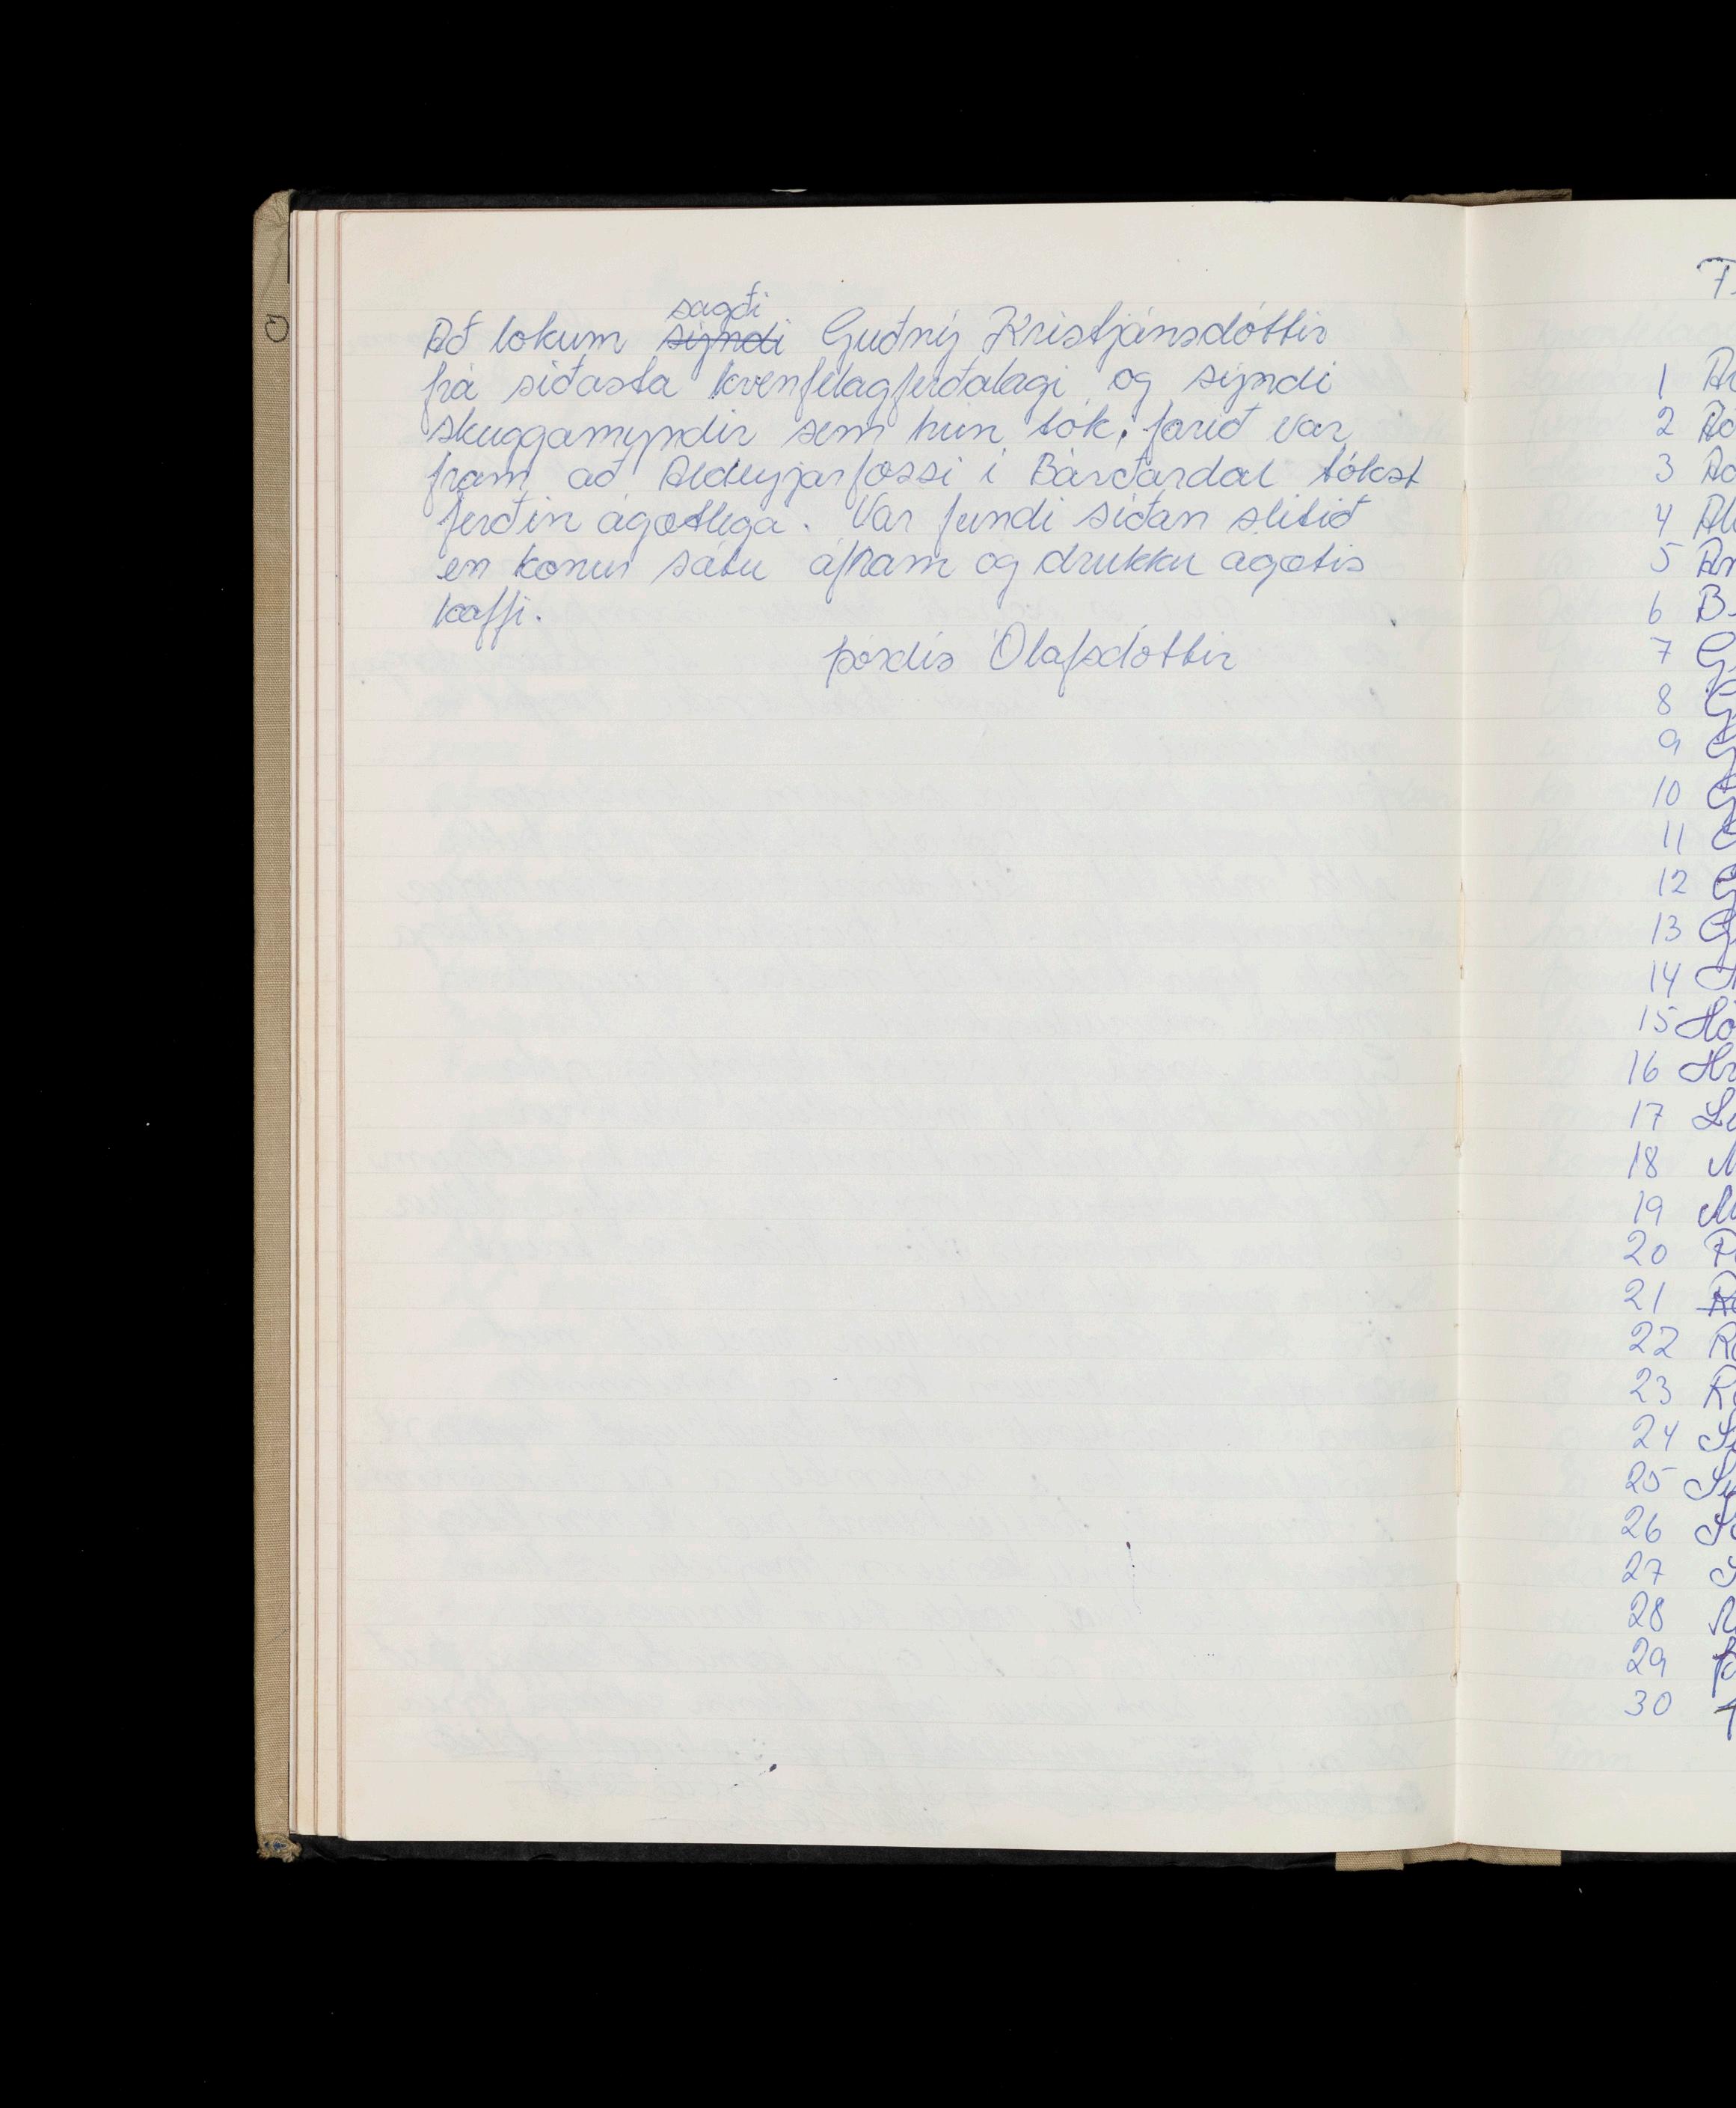 sagði
Að lokum sýndi Guðný Kristjánsdóttir
frá siðasta kvenfélagferðalagi og sýndi
skuggamyndir sem hún tók, farið var
fram að Aldeyjarfossi i Bárðardal tókst
ferðin ágætlega. Var fundi síðan slitið
en konur sátu áfram og drukku ágætis
kaffi.
Þórdís Ólafsdóttir
1
2
3
4
5
6
7
8
9
10
11
12
13
14
15
16
17
18
19
20
21
22
23
24
25
26
27
28
29
30